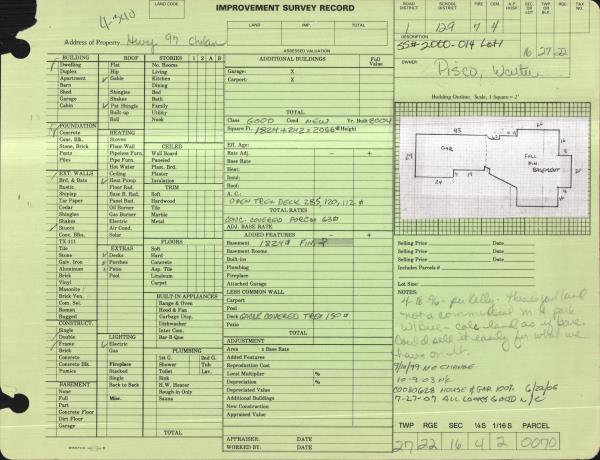 4-340
LAND CODE
IMPROVEMENT SURVEY RECORD
LAND IMP. TOTAL
Address of Property Hwy 97 Chelan
ASSESSED VALUATION
ROAD DISTRICT SCHOOL DISTRICT FIRE CEM. A.P. HOSP SEC OR LOT TWP. OR BLK. RGE. TAX NO.
1 129 7 4 16 27 22
DESCRIPTION
SS# 2000-014 Lot 1
OWNER:
Pisco, Walter
BUILDING ROOF STORIES 1 2 A B
Dwelling Flat No. Rooms
Duplex Hip Living
Apartment Gable Kitchen
Barn Dining
Shed Shingles Bed
Garage Shakes Bath
Cabin Pat Shingle Family
Built-up Utility
Roll Nook
FOUNDATION
Concrete HEATING
Conc. Blk. Stoves CEILED
Stone, Brick Floor Wall Wall Board
Posts Pipeless Furn. Paneled
Piles Pipe Furn. Plas. Brd.
Ceiling Plaster
EXT. WALLS
Brd. & Bats Heat Pump Insulation
Rustic Floor Rad. TRIM
Siding Base B. Rad. Soft
Tar Paper Panel Rad. Hardwood
Cedar Oil Burner Tile
Shingles Gas Burner Marble
Shakes Electric Metal
Stucco Air Cond.
Conc. Blks. Solar
TX-111 FLOORS
Tile EXTRAS Soft
Stone Decks Hard
Galv. Iron Porches Concrete
Aluminum Patio Asp. Tile
Brick Pool Linoleum
Vinyl Carpet
Masonite
Brick Ven. BUILT-IN APPLIANCES
Com. Sel. Range & Oven
Roman Hood & Fan
Rugged Garbage Disp.
CONSTRUCT. Dishwasher
Single Inter Com.
Double LIGHTING Bar-B-Que
Frame Electric
Brick Gas PLUMBING
Concrete 1st G. 2nd G.
Concrete Blk. Fireplace Shower Tub
Pumice Stacked Toilet Lav.
Single Sink
BASEMENT Back to Back H.W. Heater
None Rough-in Only
Full Misc. Sauna
Part
Concrete Floor
Dirt Floor
Garage
TOTAL
ADDITIONAL BUILDINGS Full Value
Garage: X
Carport: X
TOTAL
Class GOOD Cond. NEW Yr. Built 2004
Square Ft. 1824+242=2066 Height
Eff. Age:
Rate Adj. +
Base Rate
Heat:
Insul.
Roof:
A. C.:
OPEN TREX DECK 285, 120, 112
TOTAL RATES
CONC. COVERED PORCH 63
ADJ. BASE RATE
ADDED FEATURES - +
Basement 1824 FIN.
Basement Rooms
Built-ins
Plumbing
Fireplace
Attached Garage
LESS COMMON WALL
Carport
Pool
Deck COVERED TREX 150
Patio
TOTAL
ADJUSTMENT
Area x Base Rate
Added Features
Reproduction Cost
Local Multiplier %
Depreciation %
Depreciated Value
Additional Buildings
New Construction
Appraised Value
APPRAISER: DATE
WORKED BY: DATE
Building Outline: Scale, 1 Square = 2'
43
GAR
FULL FIN. BASEMENT
24
Selling Price Date
Selling Price Date
Selling Price Date
Includes Parcels #
Lot Size:
NOTES:
7/10/99 NO CHANGE
10-9-03 N/C
HOUSE & GAR 100% 6/22/05
7-27-07 ALL LOOKS GOOD N/C
TWP RGE SEC ¼S 1/16S PARCEL
27 22 16 4 2 0070